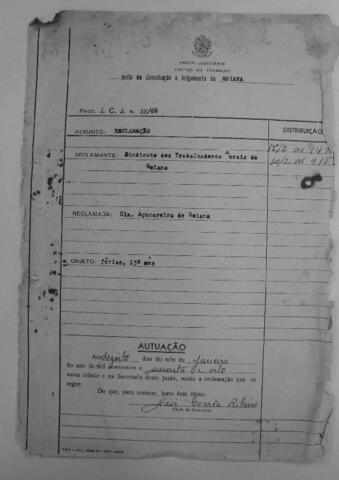 PODER JUDICIÁRIO
JUSTIÇA DO TRABALHO
Junta de Conciliação e Julgamento de GOIANA
PROC. J. C. J. N. 22/68
ASSUNTO: RECLAMAÇÃO
DISTRIBUIÇÃO
RECLAMANTE: Sindicato dos Trabalhadores Rurais de
Goiana
RECLAMADA: Cia. Açucareira de Goiana
OBJETO: férias, 13º mês
AUTUAÇÃO
Aos dezoito dias do mês de janeiro
do ano de mil novecentos e sessenta e oito
nesta cidade e na Secretaria desta Junta, autúo a reclamação que se
segue.
Do que, para constar, lavro êste têrmo.
Corrêa Ribeiro
Chefe de Secretaria